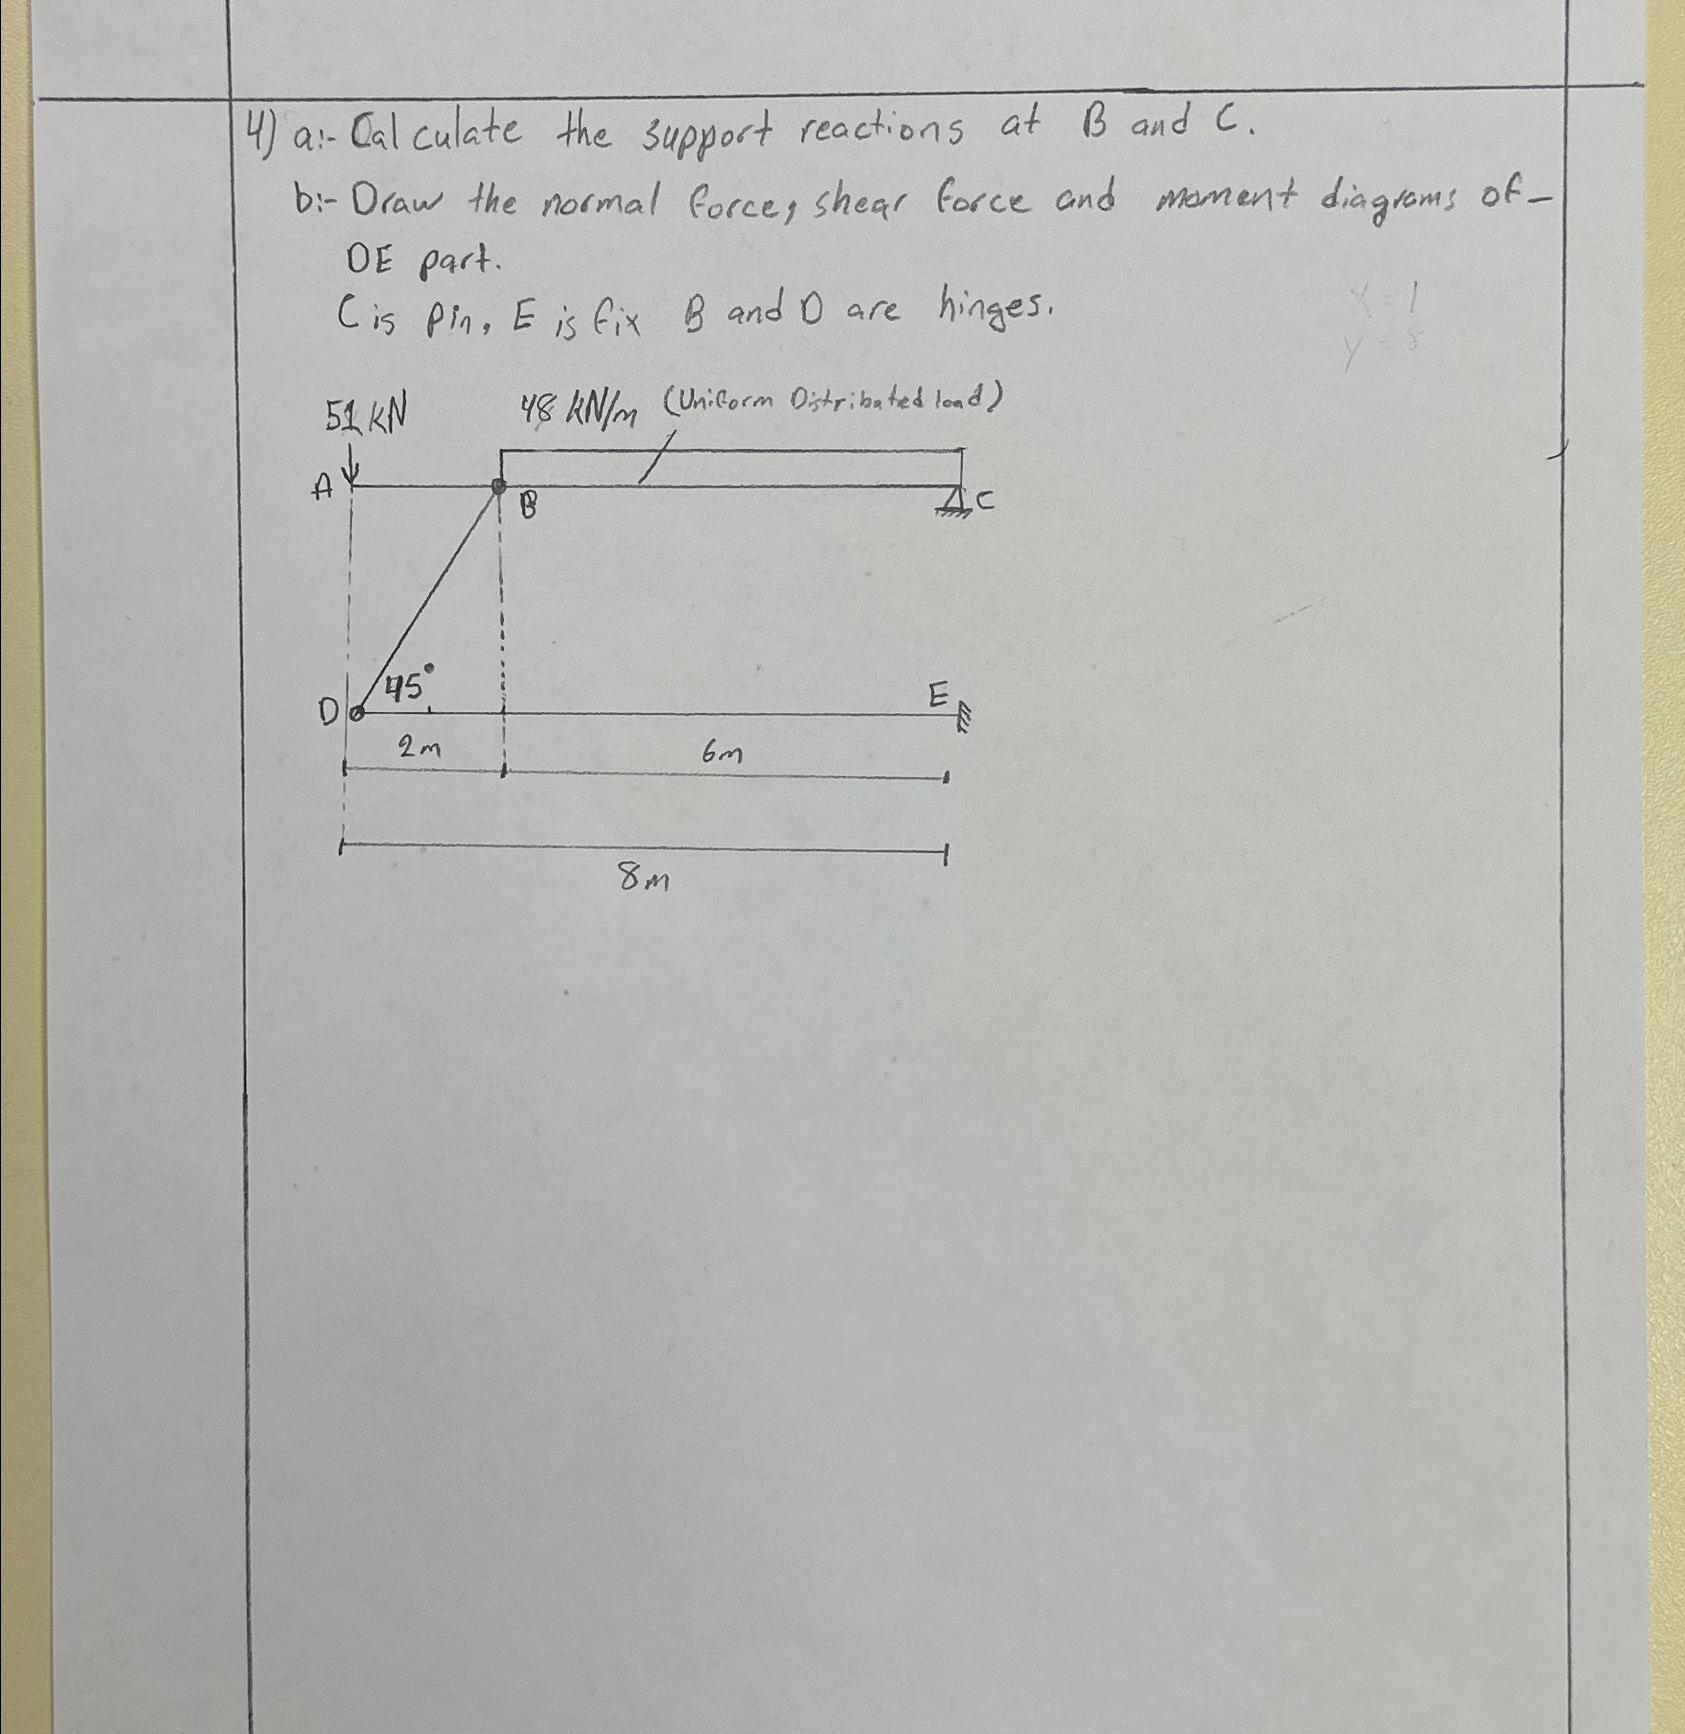 4) a:- Calculate the support reactions at B and C.
b:- Draw the normal force, shear force and moment diagrams of-
DE part.
C is pin, E is fix B and D are hinges.
x = 1
y = 8
51 kN
48 kN/m (Uniform Distributed load)
A
B
C
45°
D
E
2m
6m
8m